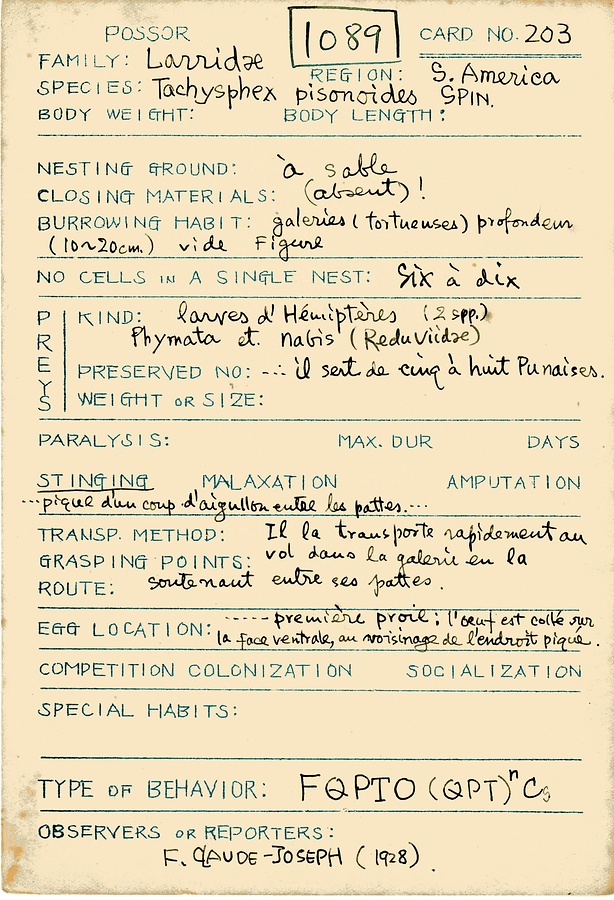 POSSOR 1089 CARD NO. 203
FAMILY: Larridæ
REGION: S. America
SPECIES: Tachysphex pisonoides SPIN.
BODY WEIGHT: BODY LENGTH:
NESTING GROUND: à sable
CLOSING MATERIALS: (absent)!
BURROWING HABIT: galeries (tortueuses) profondeur
(10~20cm.) vide Figure
NO CELLS IN A SINGLE NEST: Six à dix
PREYS
KIND: larves d'Hémiptères (2 spp.)
Phymata et. nabis (Reduviidae)
PRESERVED NO: --- il sert de cinq à huit Punaises.
WEIGHT OR SIZE:
PARALYSIS: MAX. DUR DAYS
STINGING MALAXATION AMPUTATION
...pique d'un coup d'aiguillon entre les pattes....
TRANSP. METHOD: Il la transporte rapidement au
GRASPING POINTS: vol dans la galerie en la
ROUTE: soutenant entre ses pattes.
----- première proie; l'oeuf est collé sur
EGG LOCATION: la face ventrale, au voisinage de l'endroit piqué.
COMPETITION COLONIZATION SOCIALIZATION
SPECIAL HABITS:
TYPE OF BEHAVIOR: FQPTO (QPT)ⁿ C
OBSERVERS OR REPORTERS:
F. CLAUDE-JOSEPH (1928)